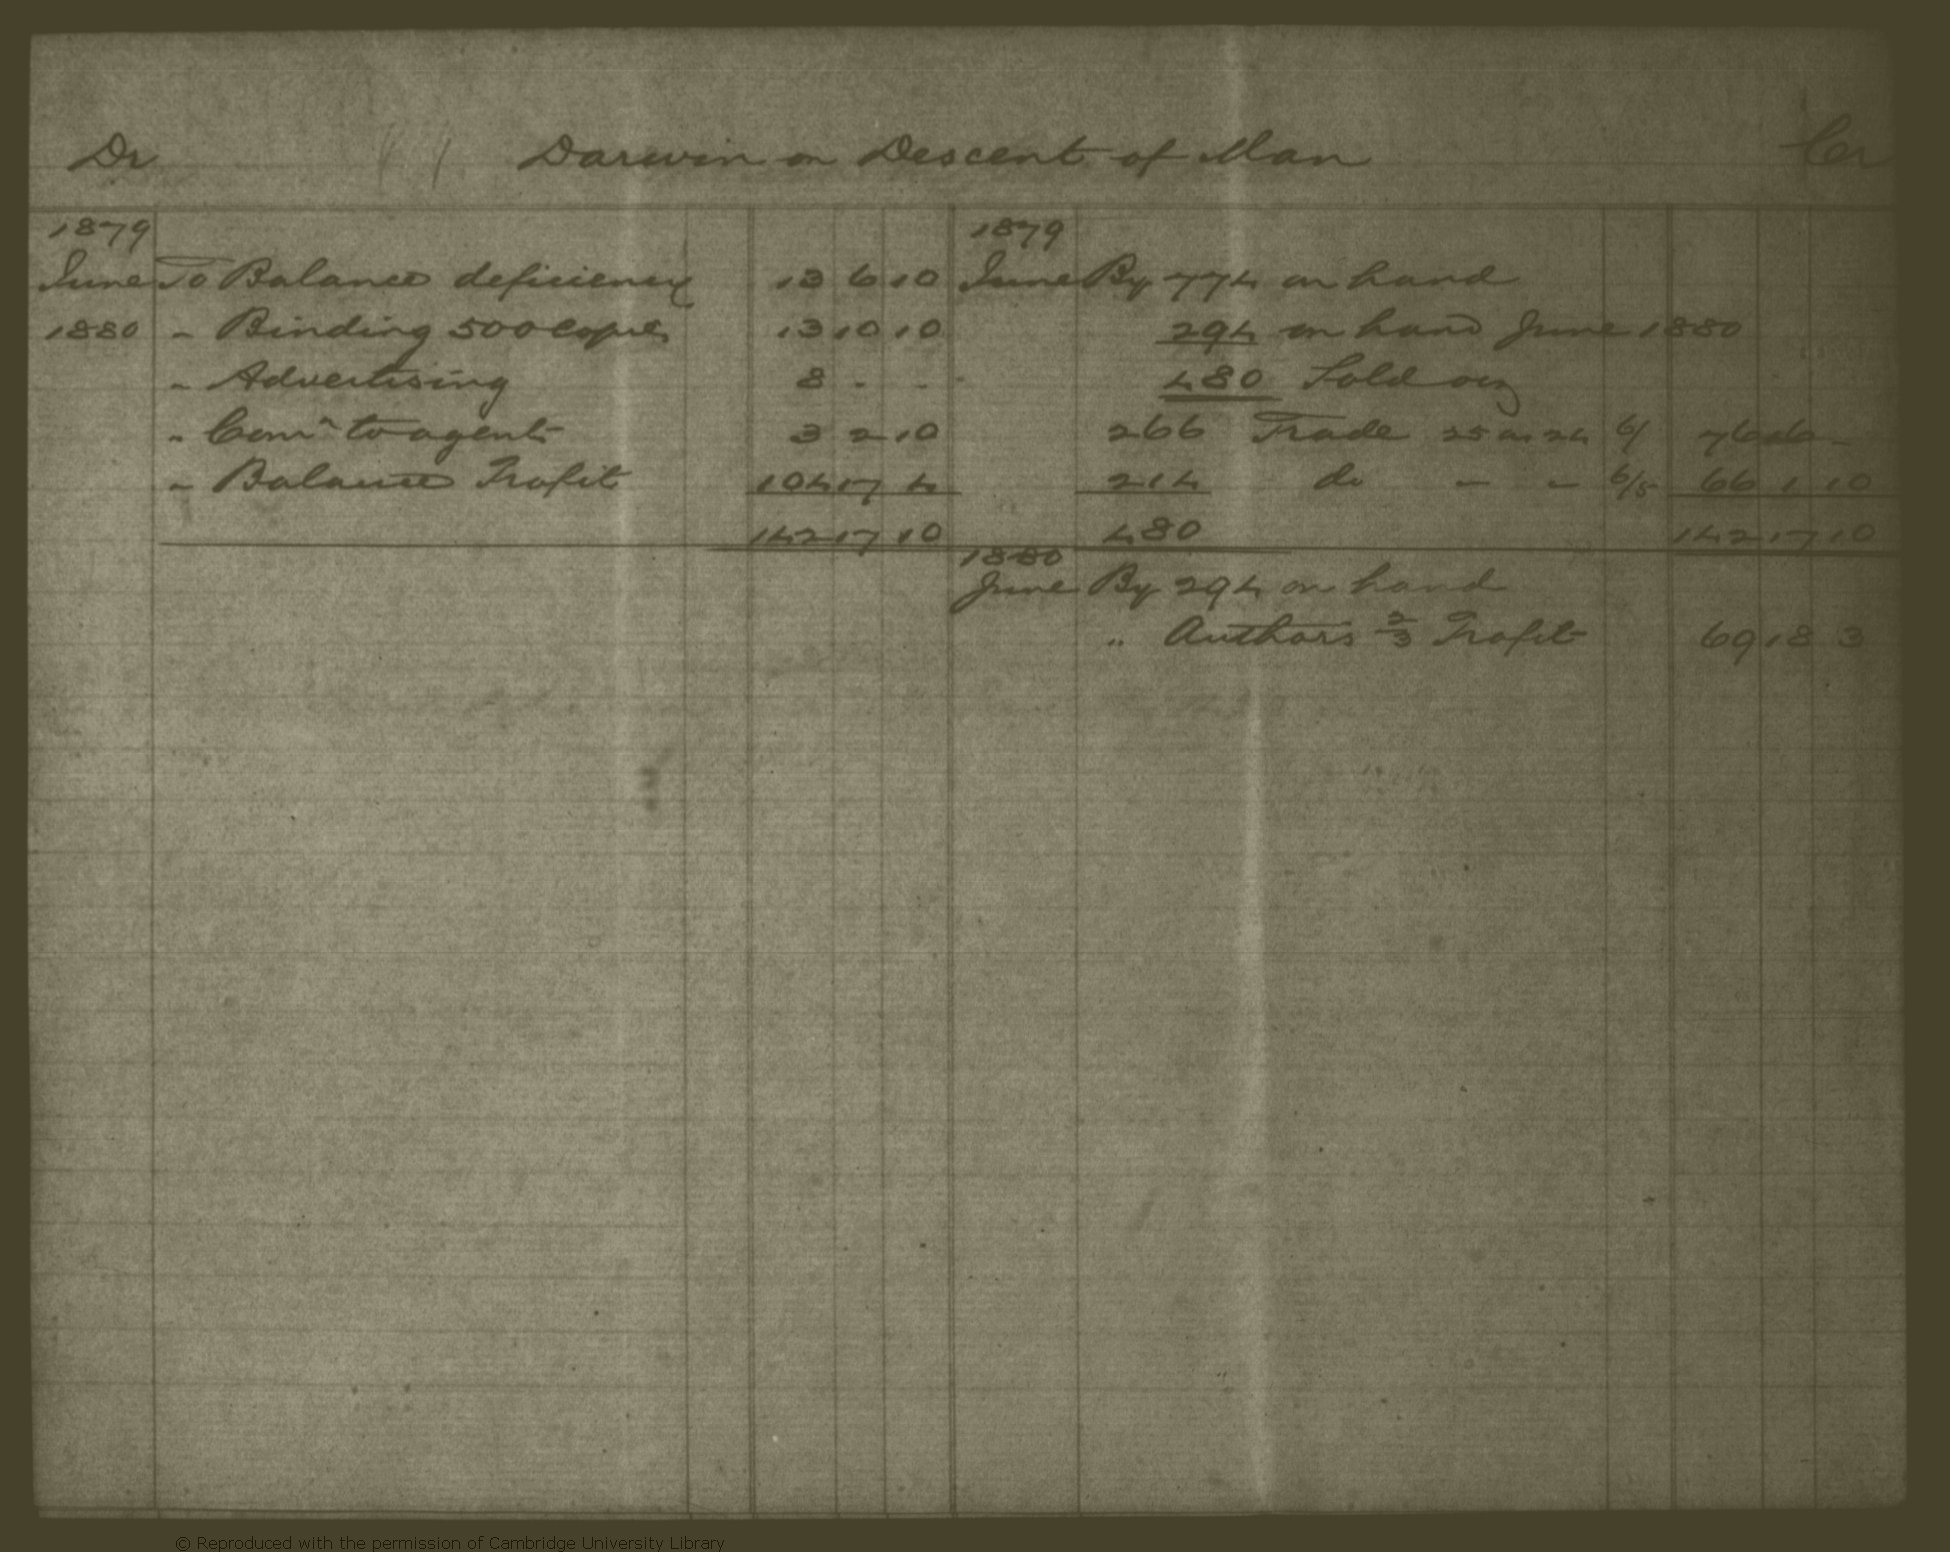 Dr Darwin on Descent of Man Cr
1879
June To Balance deficiency 13 6 10
1880 " Binding 500 Copies 13 10 10
" Advertising 8 - -
" Comn to agents 3 2 10
" Balance Profit 104 17 4
142 17 10
1879
June By 774 on hand
294 on hand June 1880
480 Sold viz
266 Trade 25 as 24 6/ 76 16 -
214 do - - 6/5 66 1 10
480 142 17 10
1880
June By 294 on hand
" Authors 2/3 Profit 69 18 3
© Reproduced with the permission of Cambridge University Library